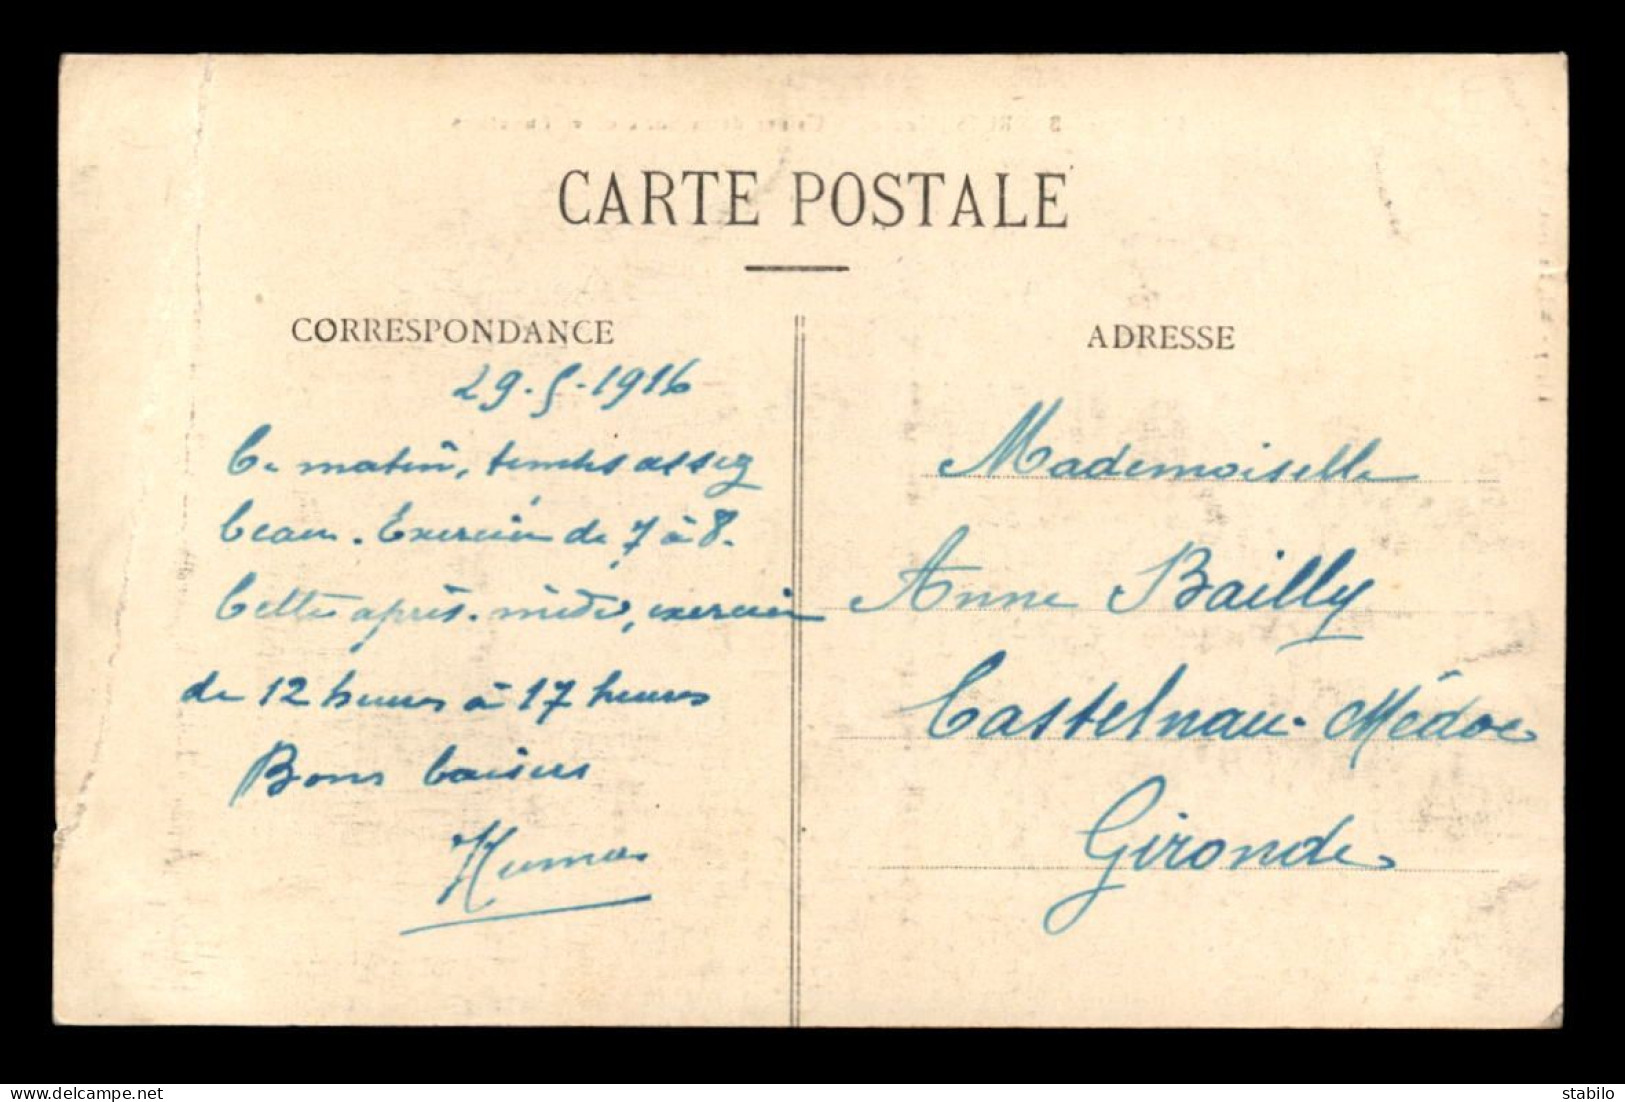 CARTE POSTALE
CORRESPONDANCE
29-5-1916
Ce matin, temps assez
beau. Exercice de 7 à 8.
Cette après-midi, exercice
de 12 heures à 17 heures
Bons baisers
ADRESSE
Mademoiselle
Anne Bailly
Castelnau-Médoc
Gironde
stabilo